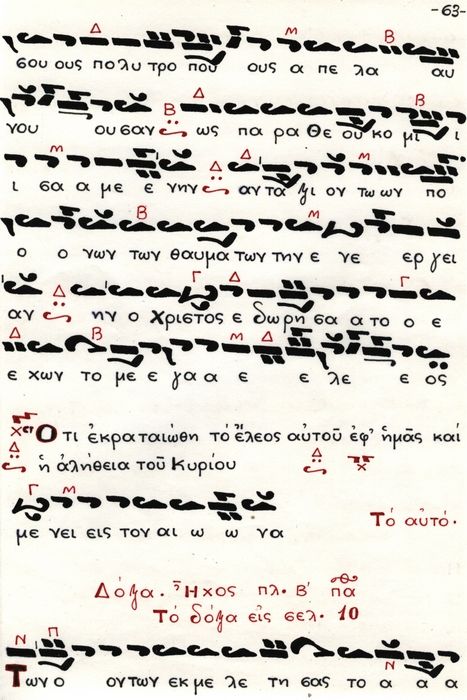 -63-
Δ Μ Β
σου ους πο λυ τρο που ους α πε λα αυ
Β Δ Β
του ου σαν ως πα ρα θε ου κο μι ι
Μ Δ Δ Μ
ι σα α με ε νην αν τα ξι ον τω ων πο
Β Μ
ο ο νων των θαυμα των την ε νε ερ γει
Δ Γ Δ Γ
αν ην ο Χριστος ε δωρη σα α το ο ε
Δ Β Μ Δ
ε χων το με ε γα α ε ε λε ε ος
Ὅτι ἐκραταιώθη τὸ ἔλεος αὐτοῦ ἐφ' ἡμᾶς καὶ
Δ Δ
ἡ ἀλήθεια τοῦ Κυρίου
Γ Μ
με νει εις τον αι ω ω να
Τὸ αὐτό.
Δόξα. Ἦχος πλ. Β΄ πα
Τὸ δόξα εἰς σελ. 10
Ν Π Ν
Των ο οντων εκ με λε τη σας το α α α